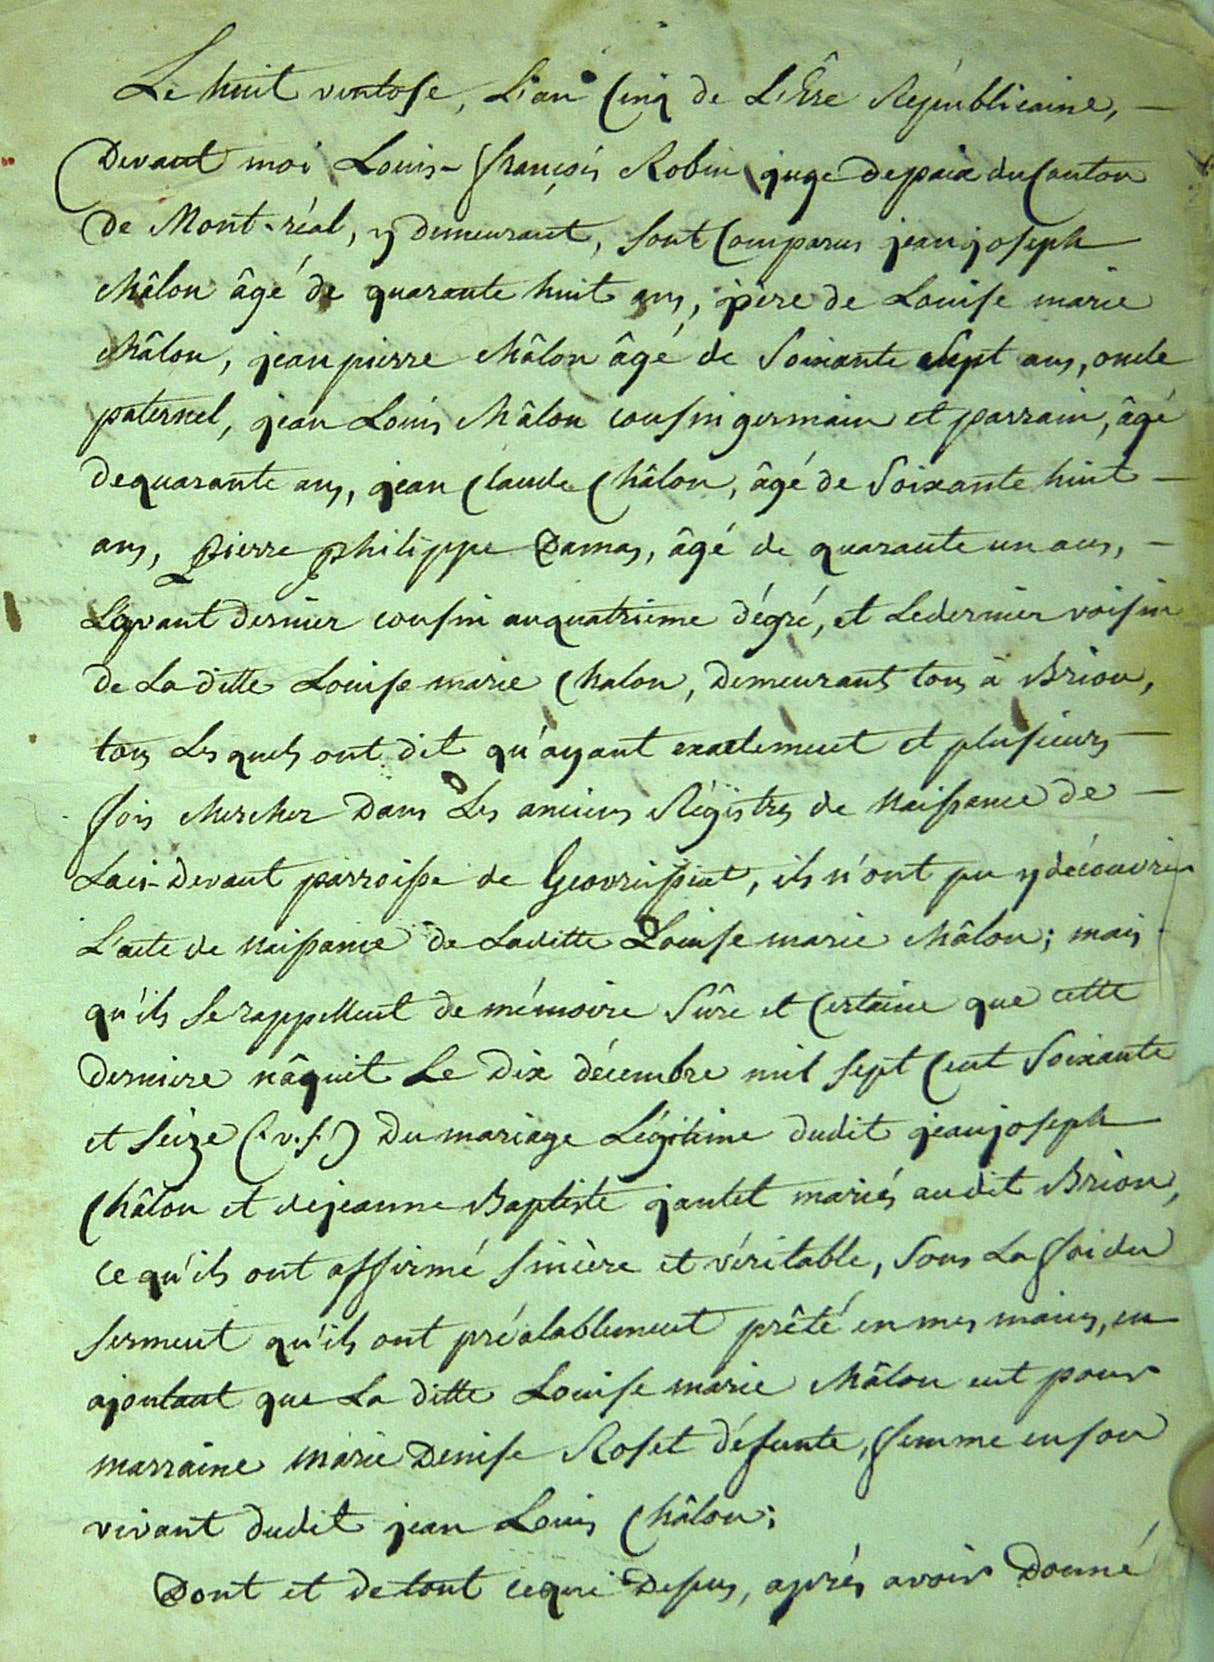 Le huit ventose, L'an Cinq de L'Êre Républicaine, —
Devant moi Louis-françois Robin juge depaix du Canton
de Mont-réal, y demeurant, sont Comparus jean joseph
châlon âgé de quarante huit ans, père de Louise marie
châlon, jean pierre châlon âgé de soixante sept ans, oncle
paternel, jean Louis châlon cousin germain et parrain, âgé
dequarante ans, jean Claude Châlon, âgé de soixante huit —
ans, pierre philippe Damas, âgé de quarante un ans, —
L'avant dernier cousin auquatrieme dégré, et Ledernier voisin
de La ditte Louise marie Chalon, demeurants tous à Brion,
tous Lesquels ont dit qu'ayant exactement et plusieurs —
fois chercher dans Les anciens Régistres de naissance de —
Laci-devant parroisse de Geovreissiat, ils n'ont pu y découvrir
L'acte de naissance de Laditte Louise marie châlon; mais
qu'ils se rappellent de mémoire sûre et Certaine que cette
derniere nâquit Le dix décembre mil sept Cent soixante
et seize (v.s.) du mariage Légitime dudit jean joseph
Châlon et dejeanne Baptiste jantet mariés audit Brion,
ce qu'ils ont affirmé sincère et véritable, sous La foi du
serment qu'ils ont préalablement prêté en mes mains, en
ajoutant que La ditte Louise marie châlon eut pour
marraine marie Denise Roset défunte, femme enson
vivant dudit jean Louis Châlon;
Dont et detout cequi Dessus, aprés avoir Donné